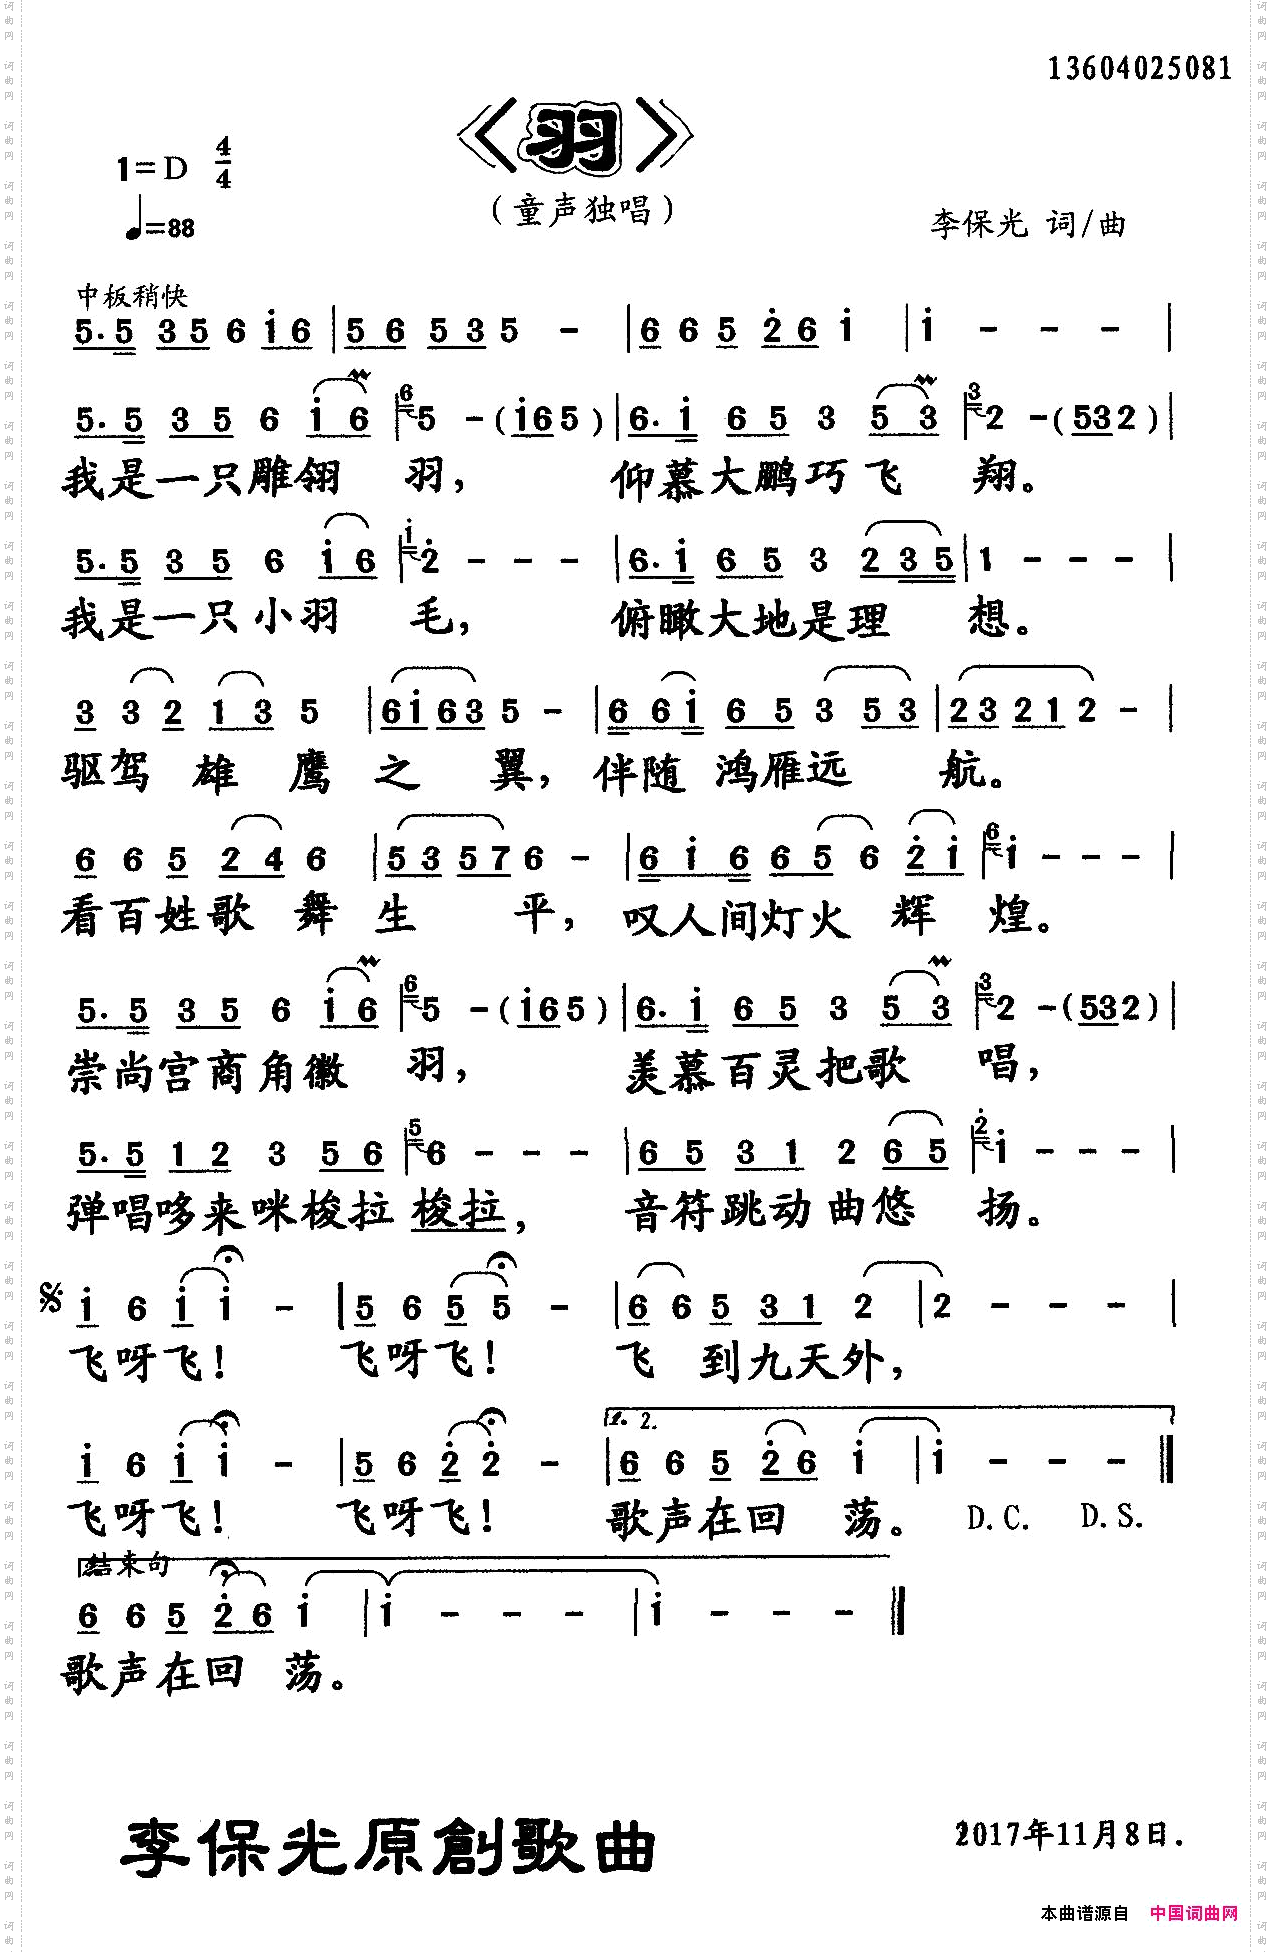 13604025081
《羽》
1=D 4/4
（童声独唱）
♩=88
李保光 词/曲
中板稍快
5. 5 3 5 6 i 6 | 5 6 5 3 5 - | 6 6 5 2̇ 6 i | i - - - |
5. 5 3 5 6 i 6 | 6 5 - (i 6 5) | 6. i 6 5 3 5 3 | 3 2 - (5 3 2) |
我是一只雕翎 羽， 仰慕大鹏巧飞 翔。
5. 5 3 5 6 i 6 | i 2̇ - - - | 6. i 6 5 3 2 3 5 | 1 - - - |
我是一只小羽 毛， 俯瞰大地是理 想。
3 3 2 1 3 5 | 6 i 6 3 5 - | 6 6 i 6 5 3 5 3 | 2 3 2 1 2 - |
驱驾 雄 鹰 之 翼， 伴随 鸿雁远 航。
6 6 5 2 4 6 | 5 3 5 7 6 - | 6 i 6 6 5 6 2̇ i | 6 i - - - |
看百姓歌 舞 生 平， 叹人间灯火 辉 煌。
5. 5 3 5 6 i 6 | 6 5 - (i 6 5) | 6. i 6 5 3 5 3 | 3 2 - (5 3 2) |
崇尚宫商角徵 羽， 羡慕百灵把歌 唱，
5. 5 1 2 3 5 6 | 5 6 - - - | 6 5 3 1 2 6 5 | 2̇ i - - - |
弹唱哆来咪梭拉 梭拉， 音符跳动曲悠 扬。
𝄋 i 6 i i - | 5 6 5 5 - | 6 6 5 3 1 2 | 2 - - - |
飞呀飞！ 飞呀飞！ 飞 到九天外，
1. 2.
i 6 i i - | 5 6 2̇ 2̇ - | 6 6 5 2̇ 6 i | i - - - ‖
飞呀飞！ 飞呀飞！ 歌声在回 荡。 D.C. D.S.
结束句
6 6 5 2̇ 6 i | i - - - | i - - - ‖
歌声在回 荡。
李保光原創歌曲
2017年11月8日.
本曲谱源自 中国词曲网